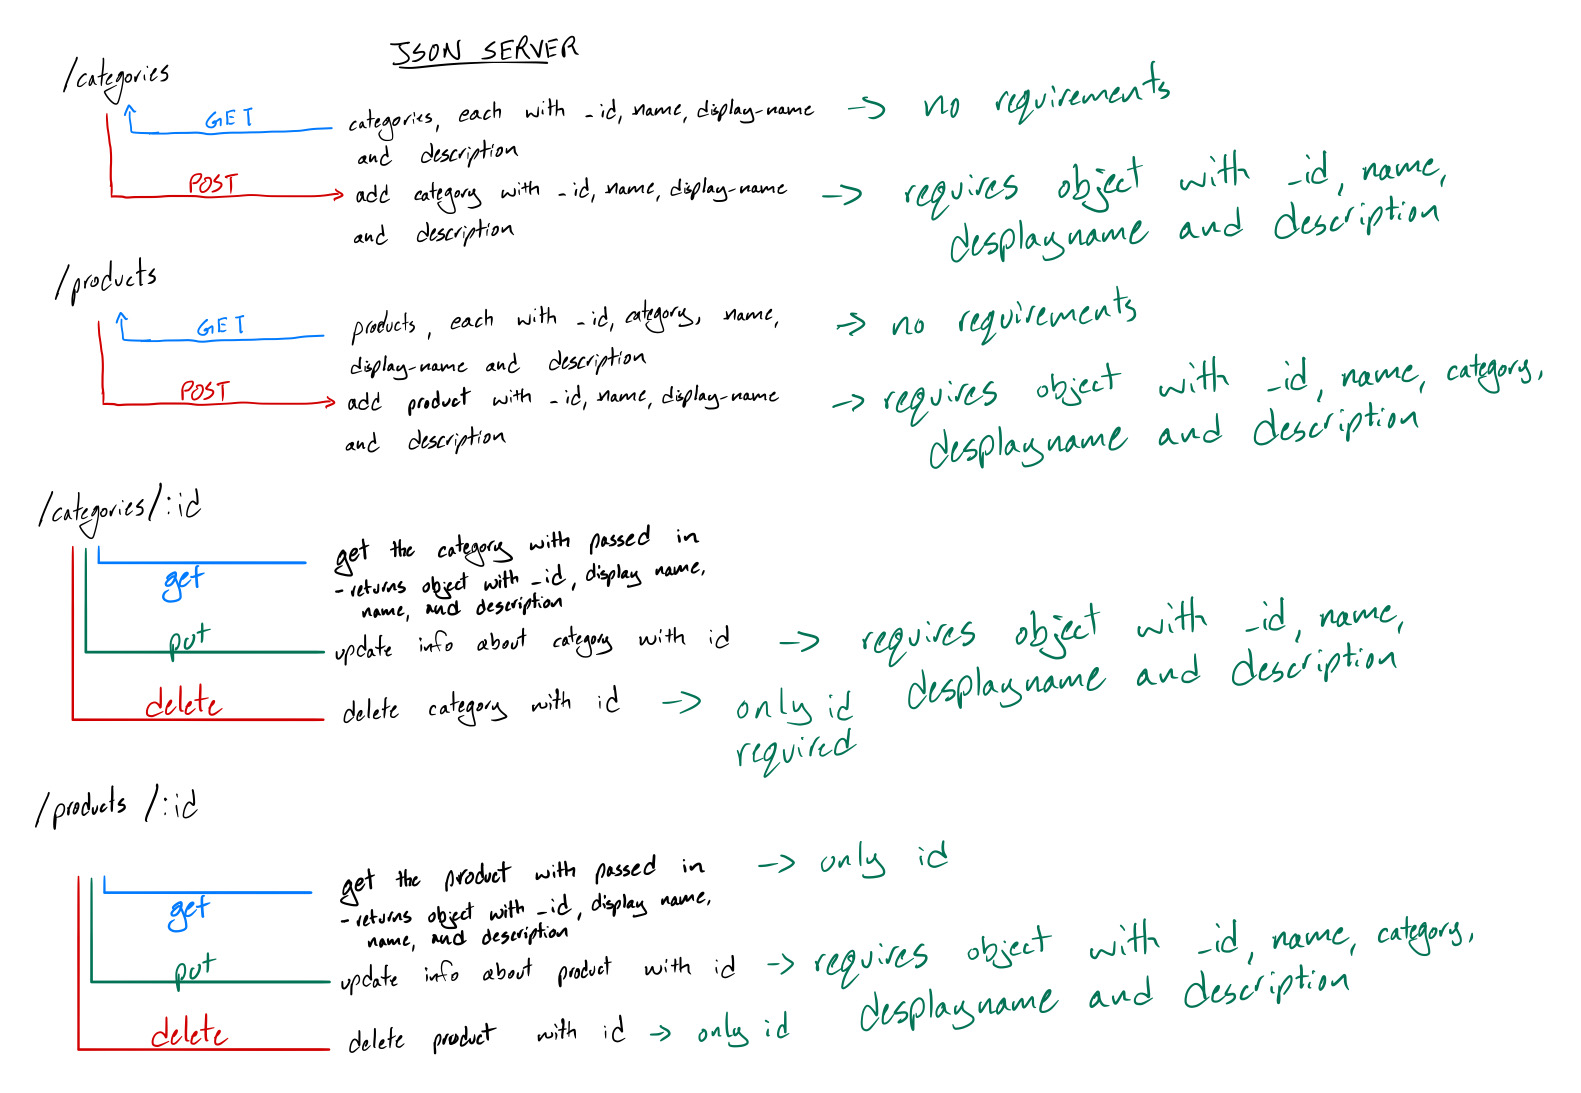 JSON SERVER
/categories
GET
categories, each with _id, name, display-name → no requirements
and description
POST
add category with _id, name, display-name → requires object with _id, name,
and description
desplayname and description
/products
GET
products, each with _id, category, name, → no requirements
display-name and description
POST
add product with _id, name, display-name → requires object with _id, name, category,
and description
desplayname and description
/categories/:id
get
get the category with passed in
- returns object with _id, display name,
name, and description
put
update info about category with id → requires object with _id, name,
desplayname and description
delete
delete category with id → only id
required
/products /:id
get
get the product with passed in → only id
- returns object with _id, display name,
name, and description
put
update info about product with id → requires object with _id, name, category,
desplayname and description
delete
delete product with id → only id